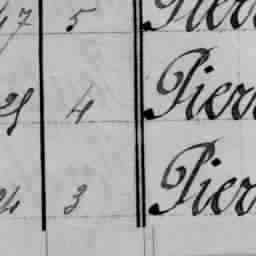 47 5 Pier
25 4 Pier
24 3 Pier